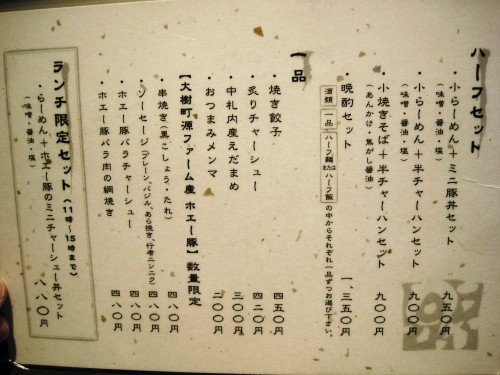 ハーフセット
・小らーめん＋ミニ豚丼セット 九五〇円
（味噌・醤油・塩）
・小らーめん＋半チャーハンセット 九〇〇円
（味噌・醤油・塩）
・小焼きそば＋半チャーハンセット 九〇〇円
（あんかけ・焦がし醤油）
・晩酌セット 一、三五〇円
酒類 一品 ハーフ麺またはハーフ飯 の中からそれぞれ一品ずつお選び下さい。
一品
・焼き餃子 四五〇円
・炙りチャーシュー 四二〇円
・中札内産えだまめ 三〇〇円
・おつまみメンマ 二〇〇円
【大樹町源ファーム産 ホエー豚】数量限定
・串焼き（黒こしょう・たれ） 四八〇円
・ソーセージ（プレーン、バジル、あら挽き、行者ニンニク） 四八〇円
・ホエー豚バラチャーシュー 四八〇円
・ホエー豚バラ肉の網焼き 四八〇円
ランチ限定セット（11時〜15時まで）
・らーめん＋ホエー豚のミニチャーシュー丼セット 八八〇円
（味噌・醤油・塩）